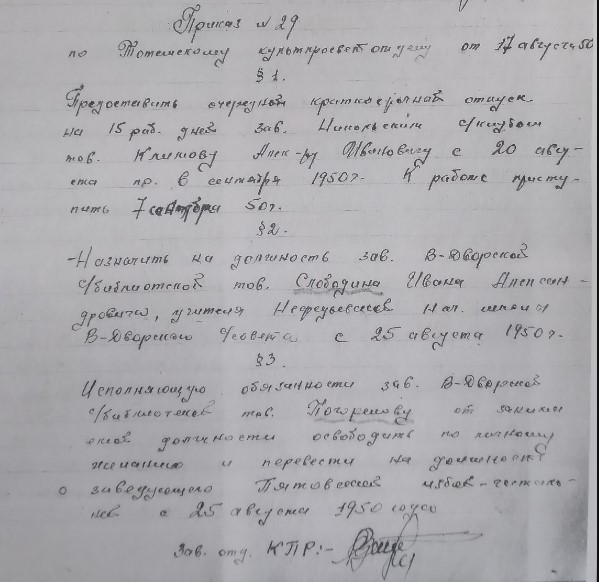 Приказ № 29
по Тотемскому культпросветотделу от 17 августа 50
§ 1.
Предоставить очередной краткосрочный отпуск
на 15 раб. дней зав. Никольским с/клубом
тов. Климову Алек-ру Ивановичу с 20 авгу-
ста по 6 сентября 1950 г. К работе присту-
пить 7 сентября 50 г.
§ 2.
-Назначить на должность зав. В-Дворской
с/библиотекой тов. Слободина Ивана Алексан-
дровича, учителя нач. школы
В-Дворского с/совета с 25 августа 1950 г.
§ 3.
Исполняющую обязанности зав. В-Дворской
с/библиотекой тов. Погорелову от занима
емой должности освободить по личному
желанию и перевести на должность
заведующего Пятовской избой-читаль-
ней с 25 августа 1950 года
Зав. отд. КПР:-